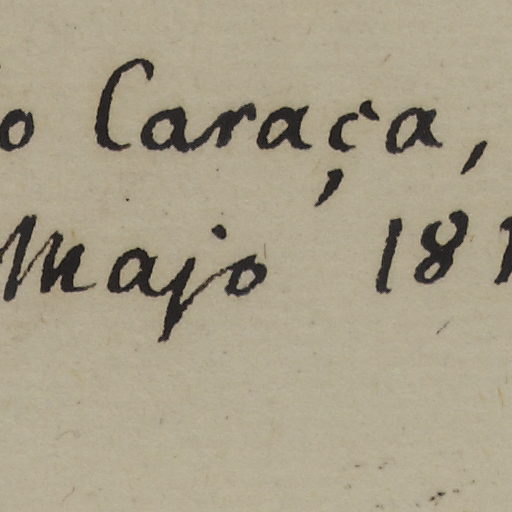 o Caraça,
Majo 181